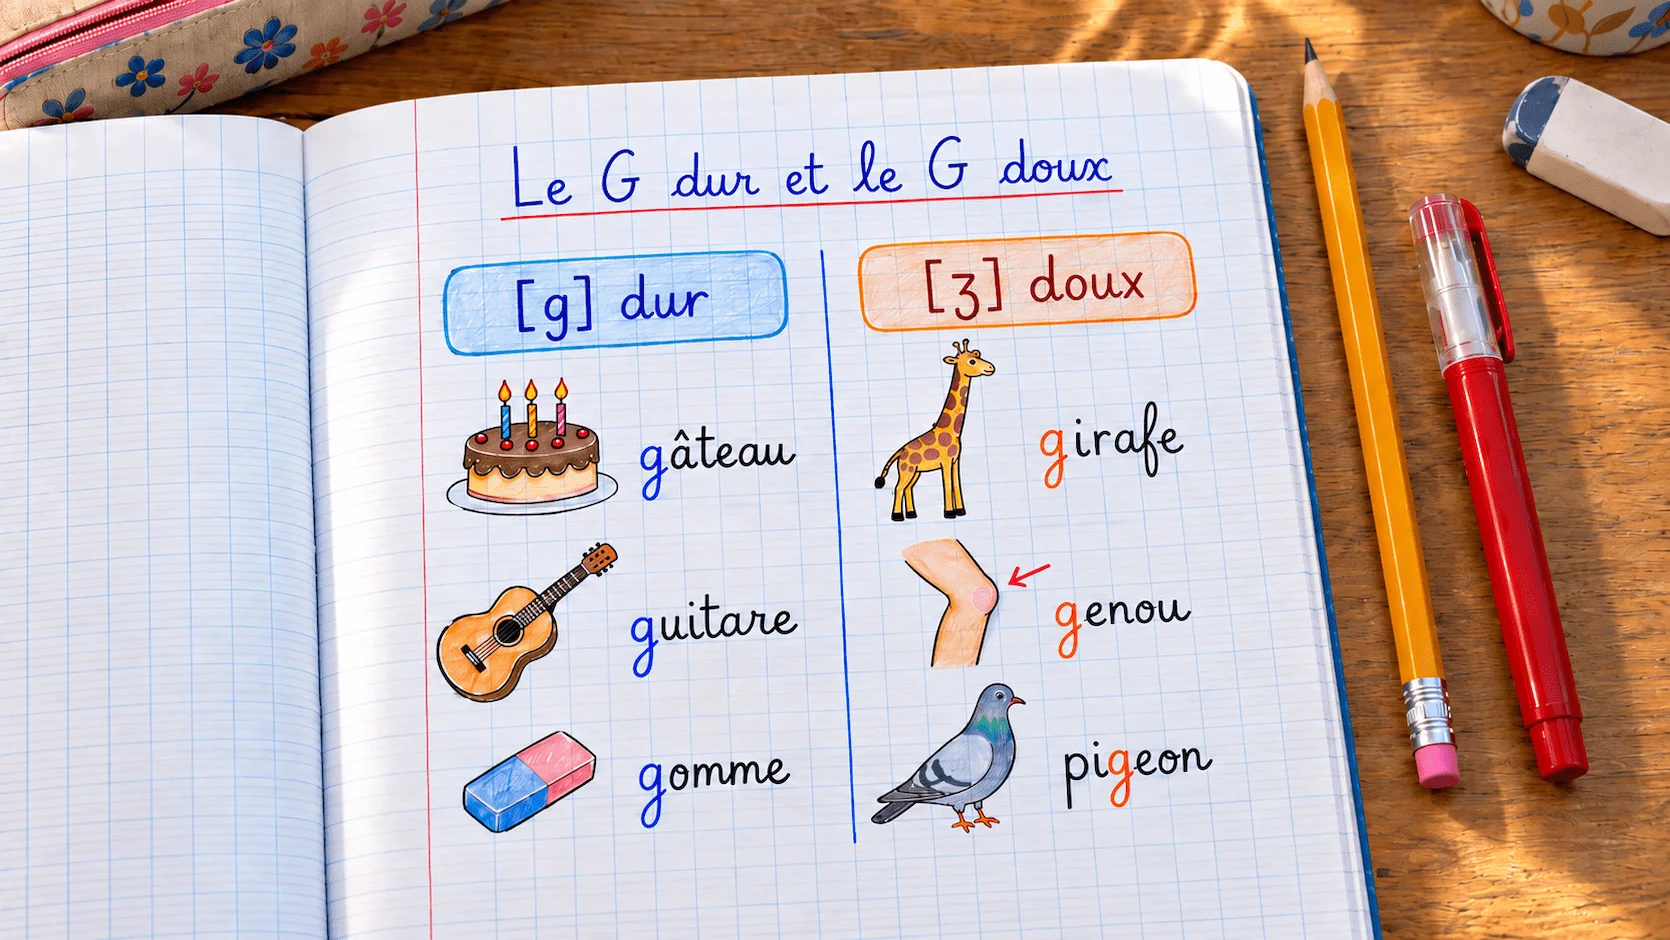 Le G dur et le G doux
[g] dur
[ʒ] doux
gâteau
girafe
guitare
genou
gomme
pigeon